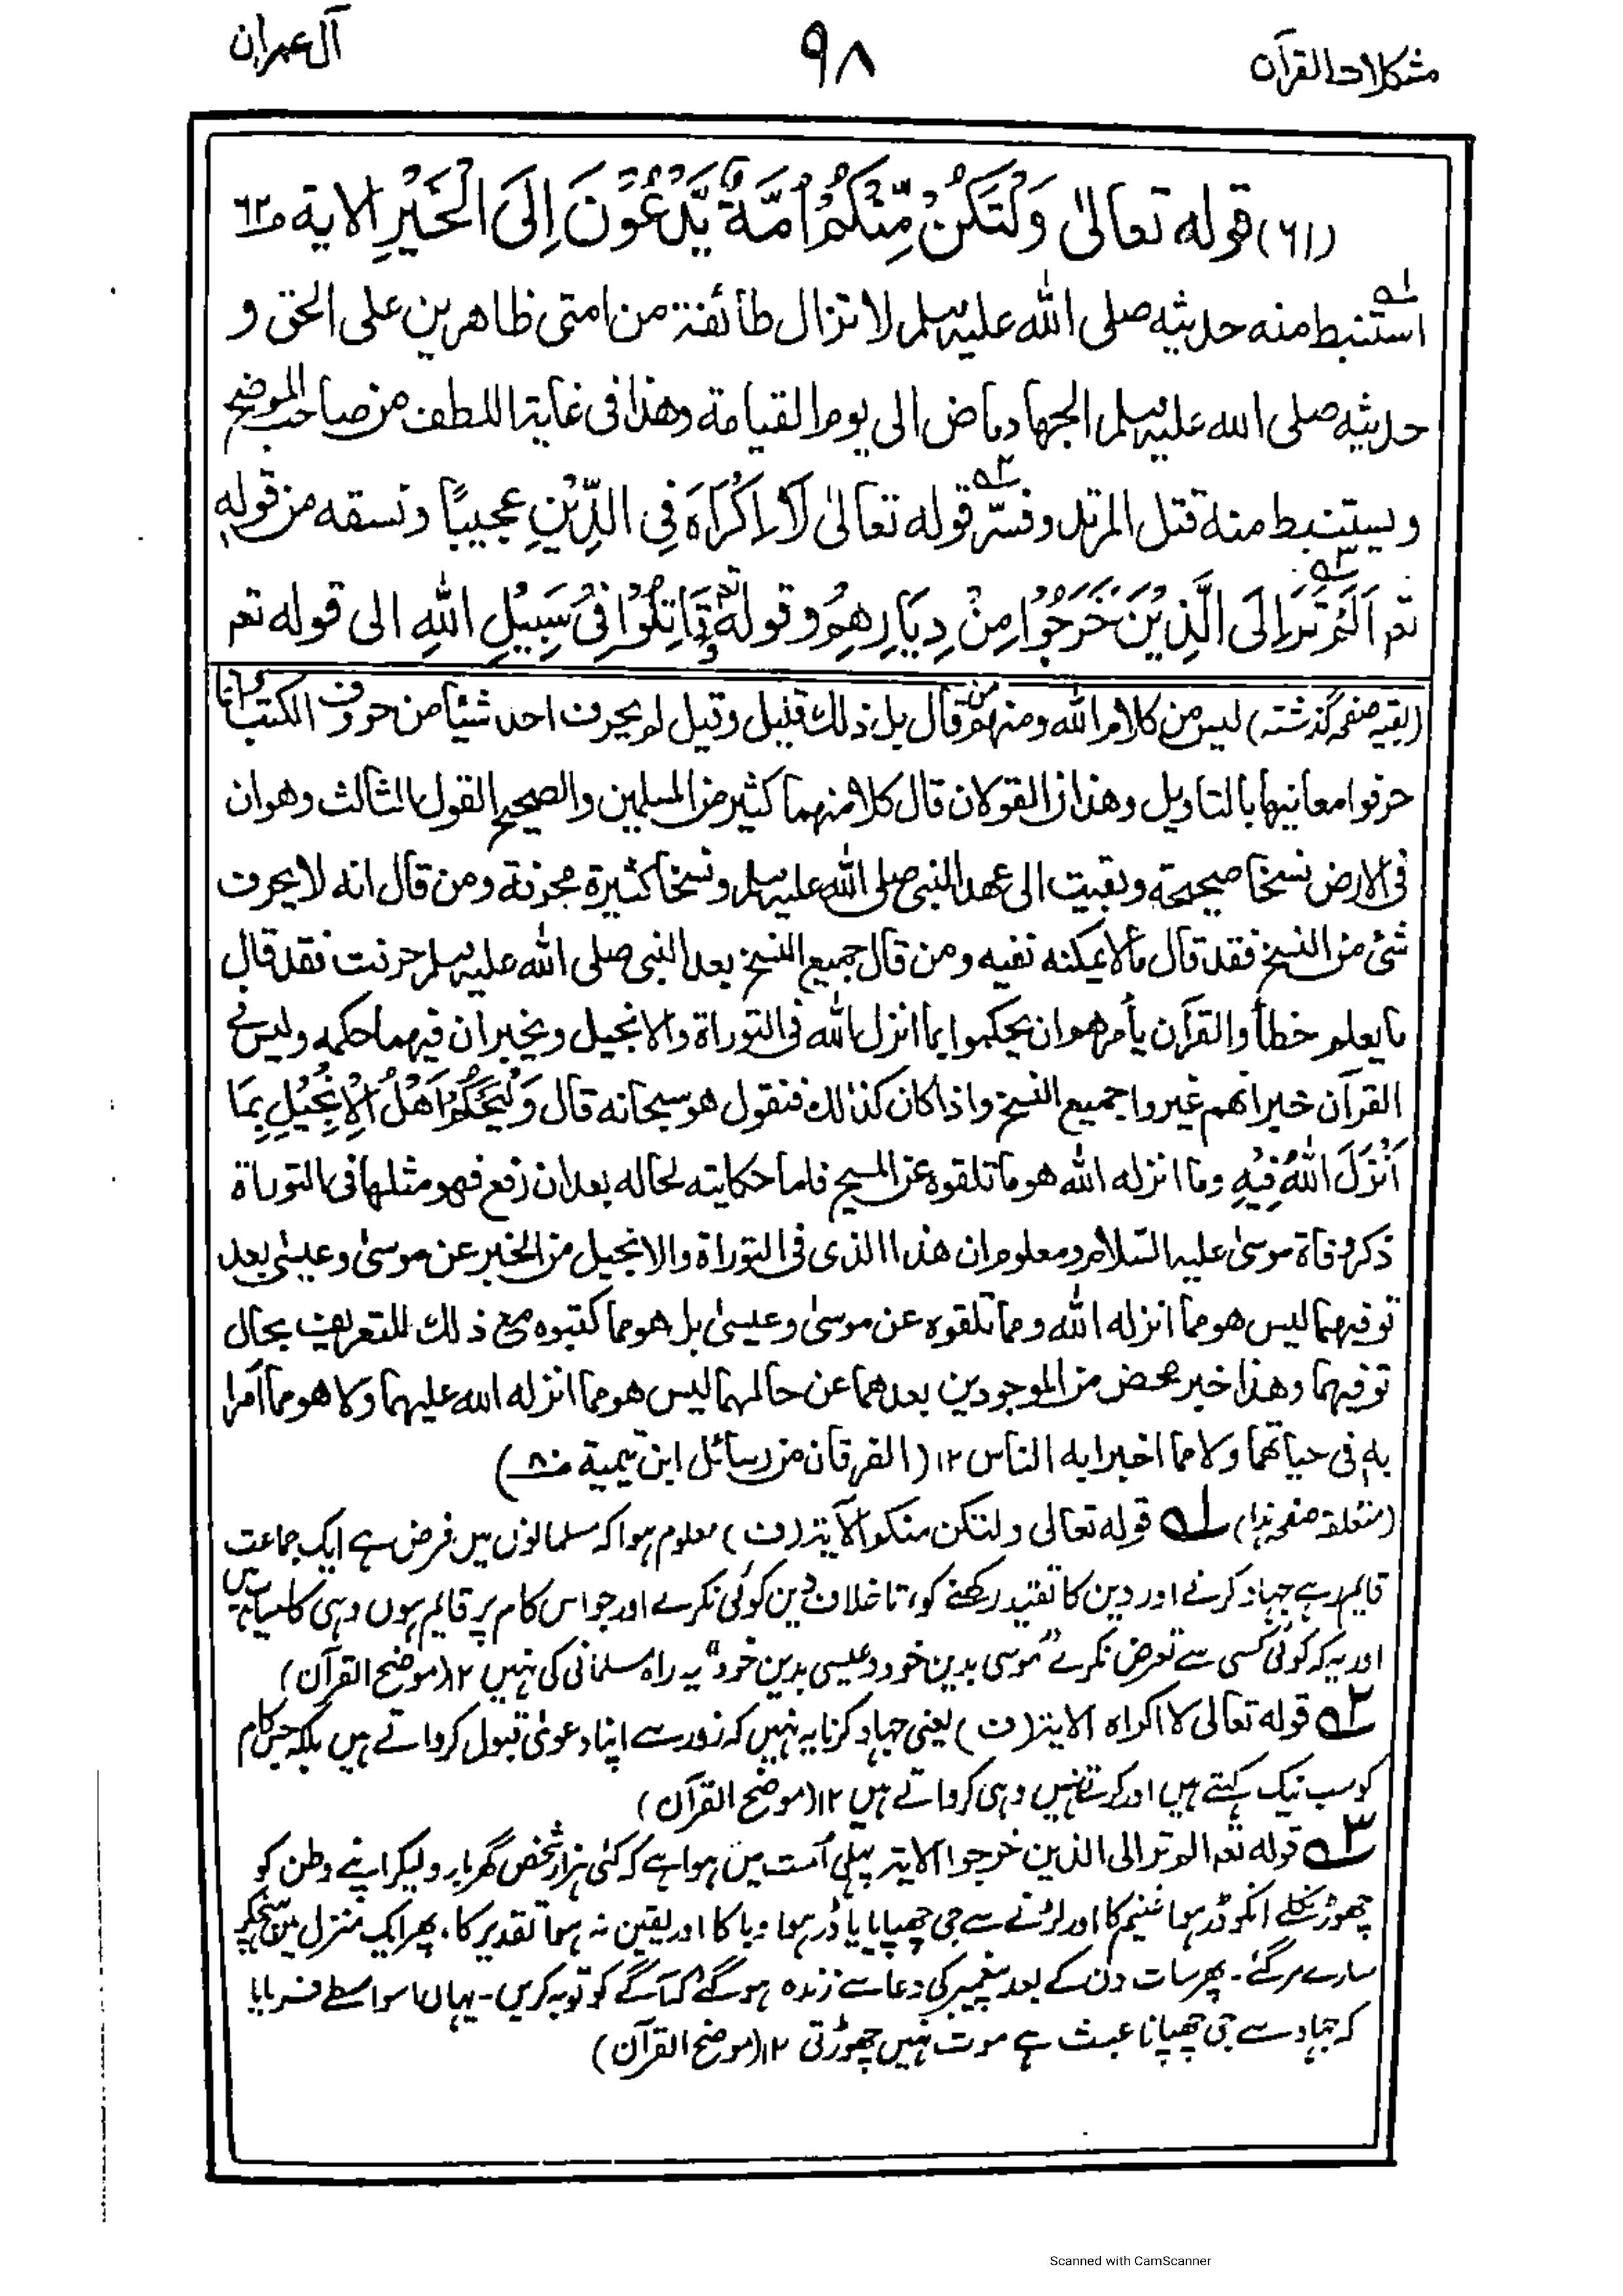 مشکلات القرآن
۹۸
آل عمران
(۶۱) قوله تعالیٰ وَلْتَكُنْ مِّنْكُمْ اُمَّةٌ يَّدْعُوْنَ اِلَى الْخَيْرِ الاية
استنبط منه حديثه صلى الله عليه وسلم لا تزال طائفة من امتى ظاهرين على الحق و
حديثه صلى الله عليه وسلم الجهاد ماض الى يوم القيامة وهذا فى غاية اللطف من صاحب الموضح
ويستنبط منه قتل المرتد وفسّر قوله تعالىٰ لَآ اِكْرَاهَ فِى الدِّيْنِ عجيبًا ونسقه من قوله
تعم اَلَمْ تَرَ اِلَى الَّذِيْنَ خَرَجُوْا مِنْ دِيَارِهِمْ وقوله تعم وَقَاتِلُوْا فِىْ سَبِيْلِ اللّٰهِ الى قوله تعم
(بقیہ صفحہ گذشتہ) ليس من كلام الله ومنهم من قال بل ذلك قليل وقيل لم يحرف احد شيئا من حروف الكتب وانما
حرفوا معانيها بالتاويل وهذان القولان قال كلا منهما كثير من المسلمين والصحيح القول الثالث وهو ان
فى الارض نسخا صحيحة وبقيت الى عهد النبى صلى الله عليه وسلم ونسخا كثيرة محرفة ومن قال انه لا يحرف
شئ من النسخ فقد قال مالا يمكنه نفيه ومن قال جميع النسخ بعد النبى صلى الله عليه وسلم حرفت فقد قال
ما يعلم خطأ والقرآن يأمرهم ان يحكموا بما انزل الله فى التوراة والانجيل ويخبر ان فيهما حكمه وليس فى
القرآن خبر انهم غيروا جميع النسخ واذا كان كذلك فنقول هو سبحانه قال وَلْيَحْكُمْ اَهْلُ الْاِنْجِيْلِ بِمَا
اَنْزَلَ اللّٰهُ فِيْهِ وما انزله الله هو ما تلقوه عن المسيح فاما حكايته لحاله بعد ان رفع فهو مثلها فى التوراة
ذكر وفاة موسىٰ عليه السّلام ومعلوم ان هذا الذى فى التوراة والانجيل من الخبر عن موسىٰ وعيسىٰ بعد
توفيهما ليس هو مما انزله الله ومما تلقوه عن موسىٰ وعيسىٰ بل هو مما كتبوه مع ذلك للتعريف بحال
توفيهما وهذا خبر محض من الموجودين بعدهما عن حالهما ليس هو مما انزله الله عليهما ولا هو مما أمرا
به فى حياتهما ولا مما اخبرا به الناس ۱۲ (الفرقان من رسائل ابن تيمية)
(متعلقہ صفحہ ہذا) ؂۱ قوله تعالى ولتكن منكم الآية (ف) معلوم ہوا کہ مسلمانوں میں فرض ہے ایک جماعت
قایم رہے جہاد کرنے اور دین کا تقید رکھنے کو، تا خلاف دین کوئی نکرے اور جو اس کام پر قایم ہوں وہی کامیاب ہیں
اور یہ کہ کوئی کسی سے تعرض نکرے "موسی بدین خود وعیسی بدین خود" یہ راہ مسلمانی کی نہیں ۱۲ (موضح القرآن)
؂۲ قوله تعالى لا اكراه الاية (ف) یعنی جہاد کرنا یہ نہیں کہ زور سے اپنا دعویٰ قبول کرواتے ہیں بلکہ جس کام
کو سب نیک کہتے ہیں اور کرتے نہیں وہی کرواتے ہیں ۱۲ (موضح القرآن)
؂۳ قوله تعم الم تر الى الذين خرجوا الاية پہلی اُمت میں ہوا ہے کہ کئی ہزار شخص گھر بار ولیکر اپنے وطن کو
چھوڑ نکلے انکو ڈر ہوا غنیم کا اور لڑنے سے جی چھپایا یا ڈر ہوا وبا کا اور یقین نہ ہوا تقدیر کا، پھر ایک منزل میں پہنچکر
سارے مر گئے۔ پھر سات دن کے بعد پیغمبر کی دعا سے زندہ ہوگئے کہ آگے کو توبہ کریں۔ یہاں اسواسطے فرمایا
کہ جہاد سے جی چھپانا عبث ہے موت نہیں چھوڑتی ۱۲ (موضح القرآن)
Scanned with CamScanner